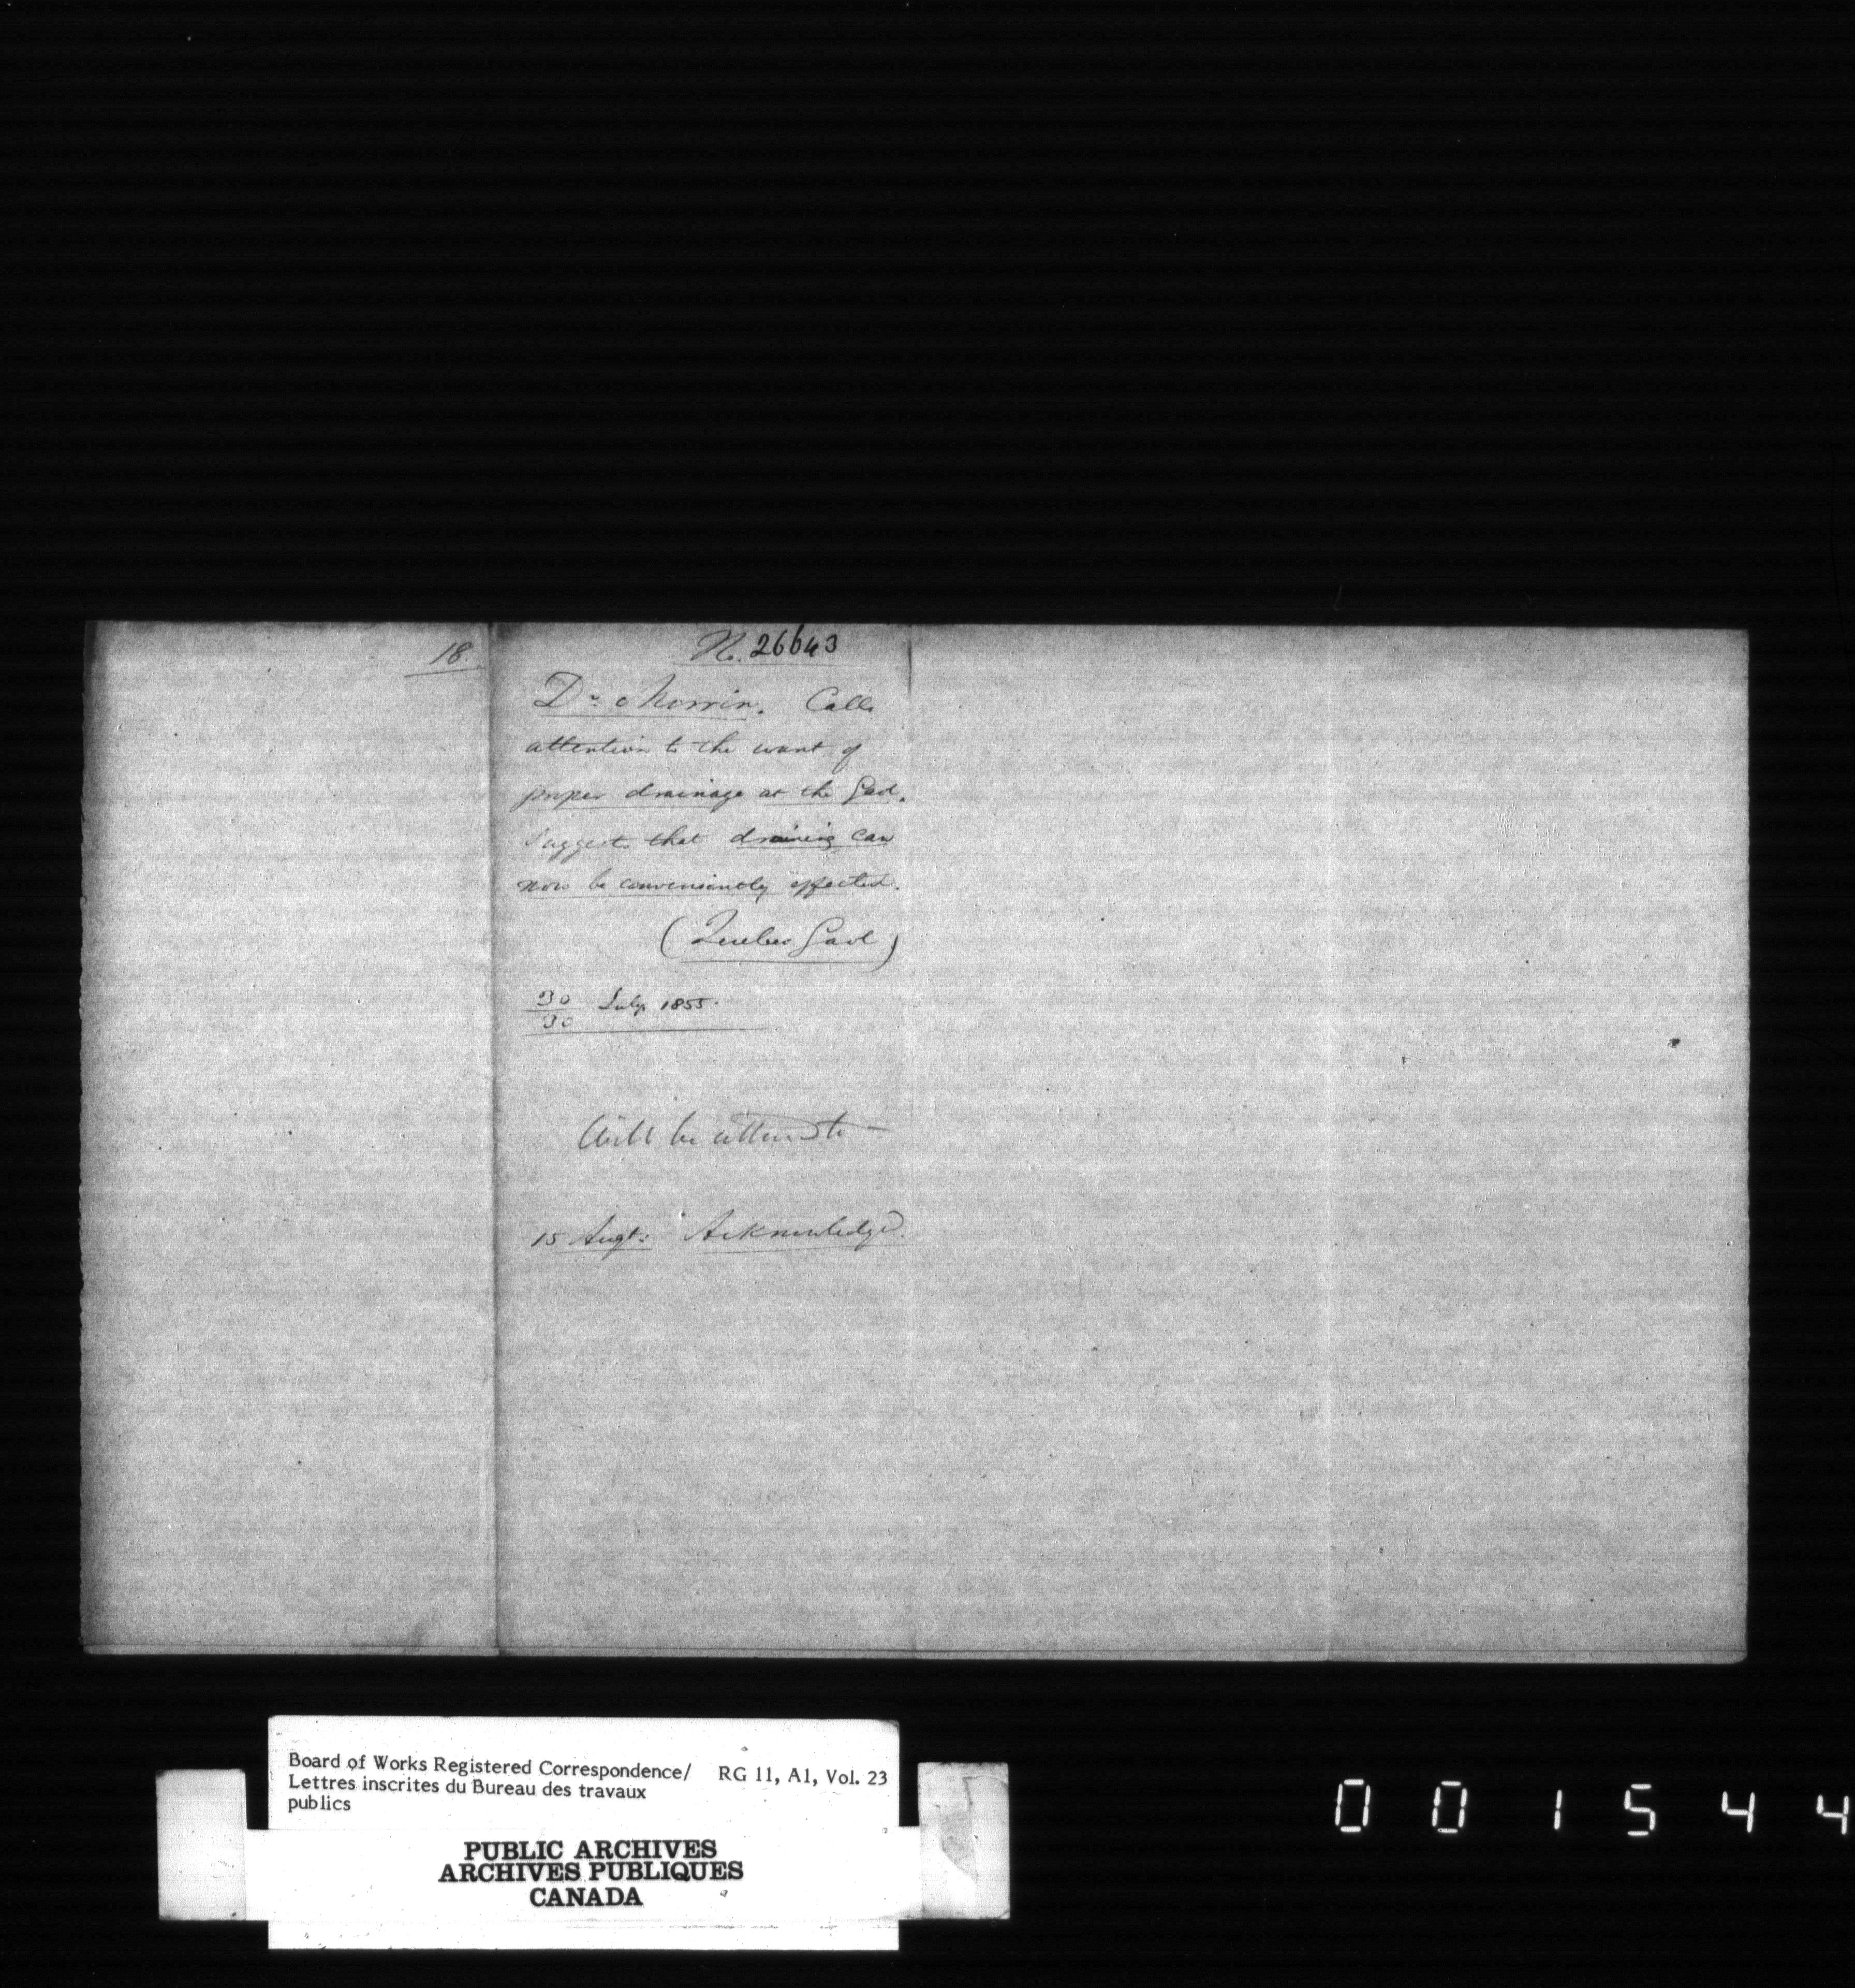 18
No. 26643
Dr Morrin. Calls
attention to the want of
proper drainage at the Gaol.
Suggests that draining can
now be conveniently effected.
(Quebec Gaol)
30
30 July 1855.
Will be attended to —
15 Augt: Acknowledged.
Board of Works Registered Correspondence/ RG 11, A1, Vol. 23
Lettres inscrites du Bureau des travaux
publics
PUBLIC ARCHIVES
ARCHIVES PUBLIQUES
CANADA
001544